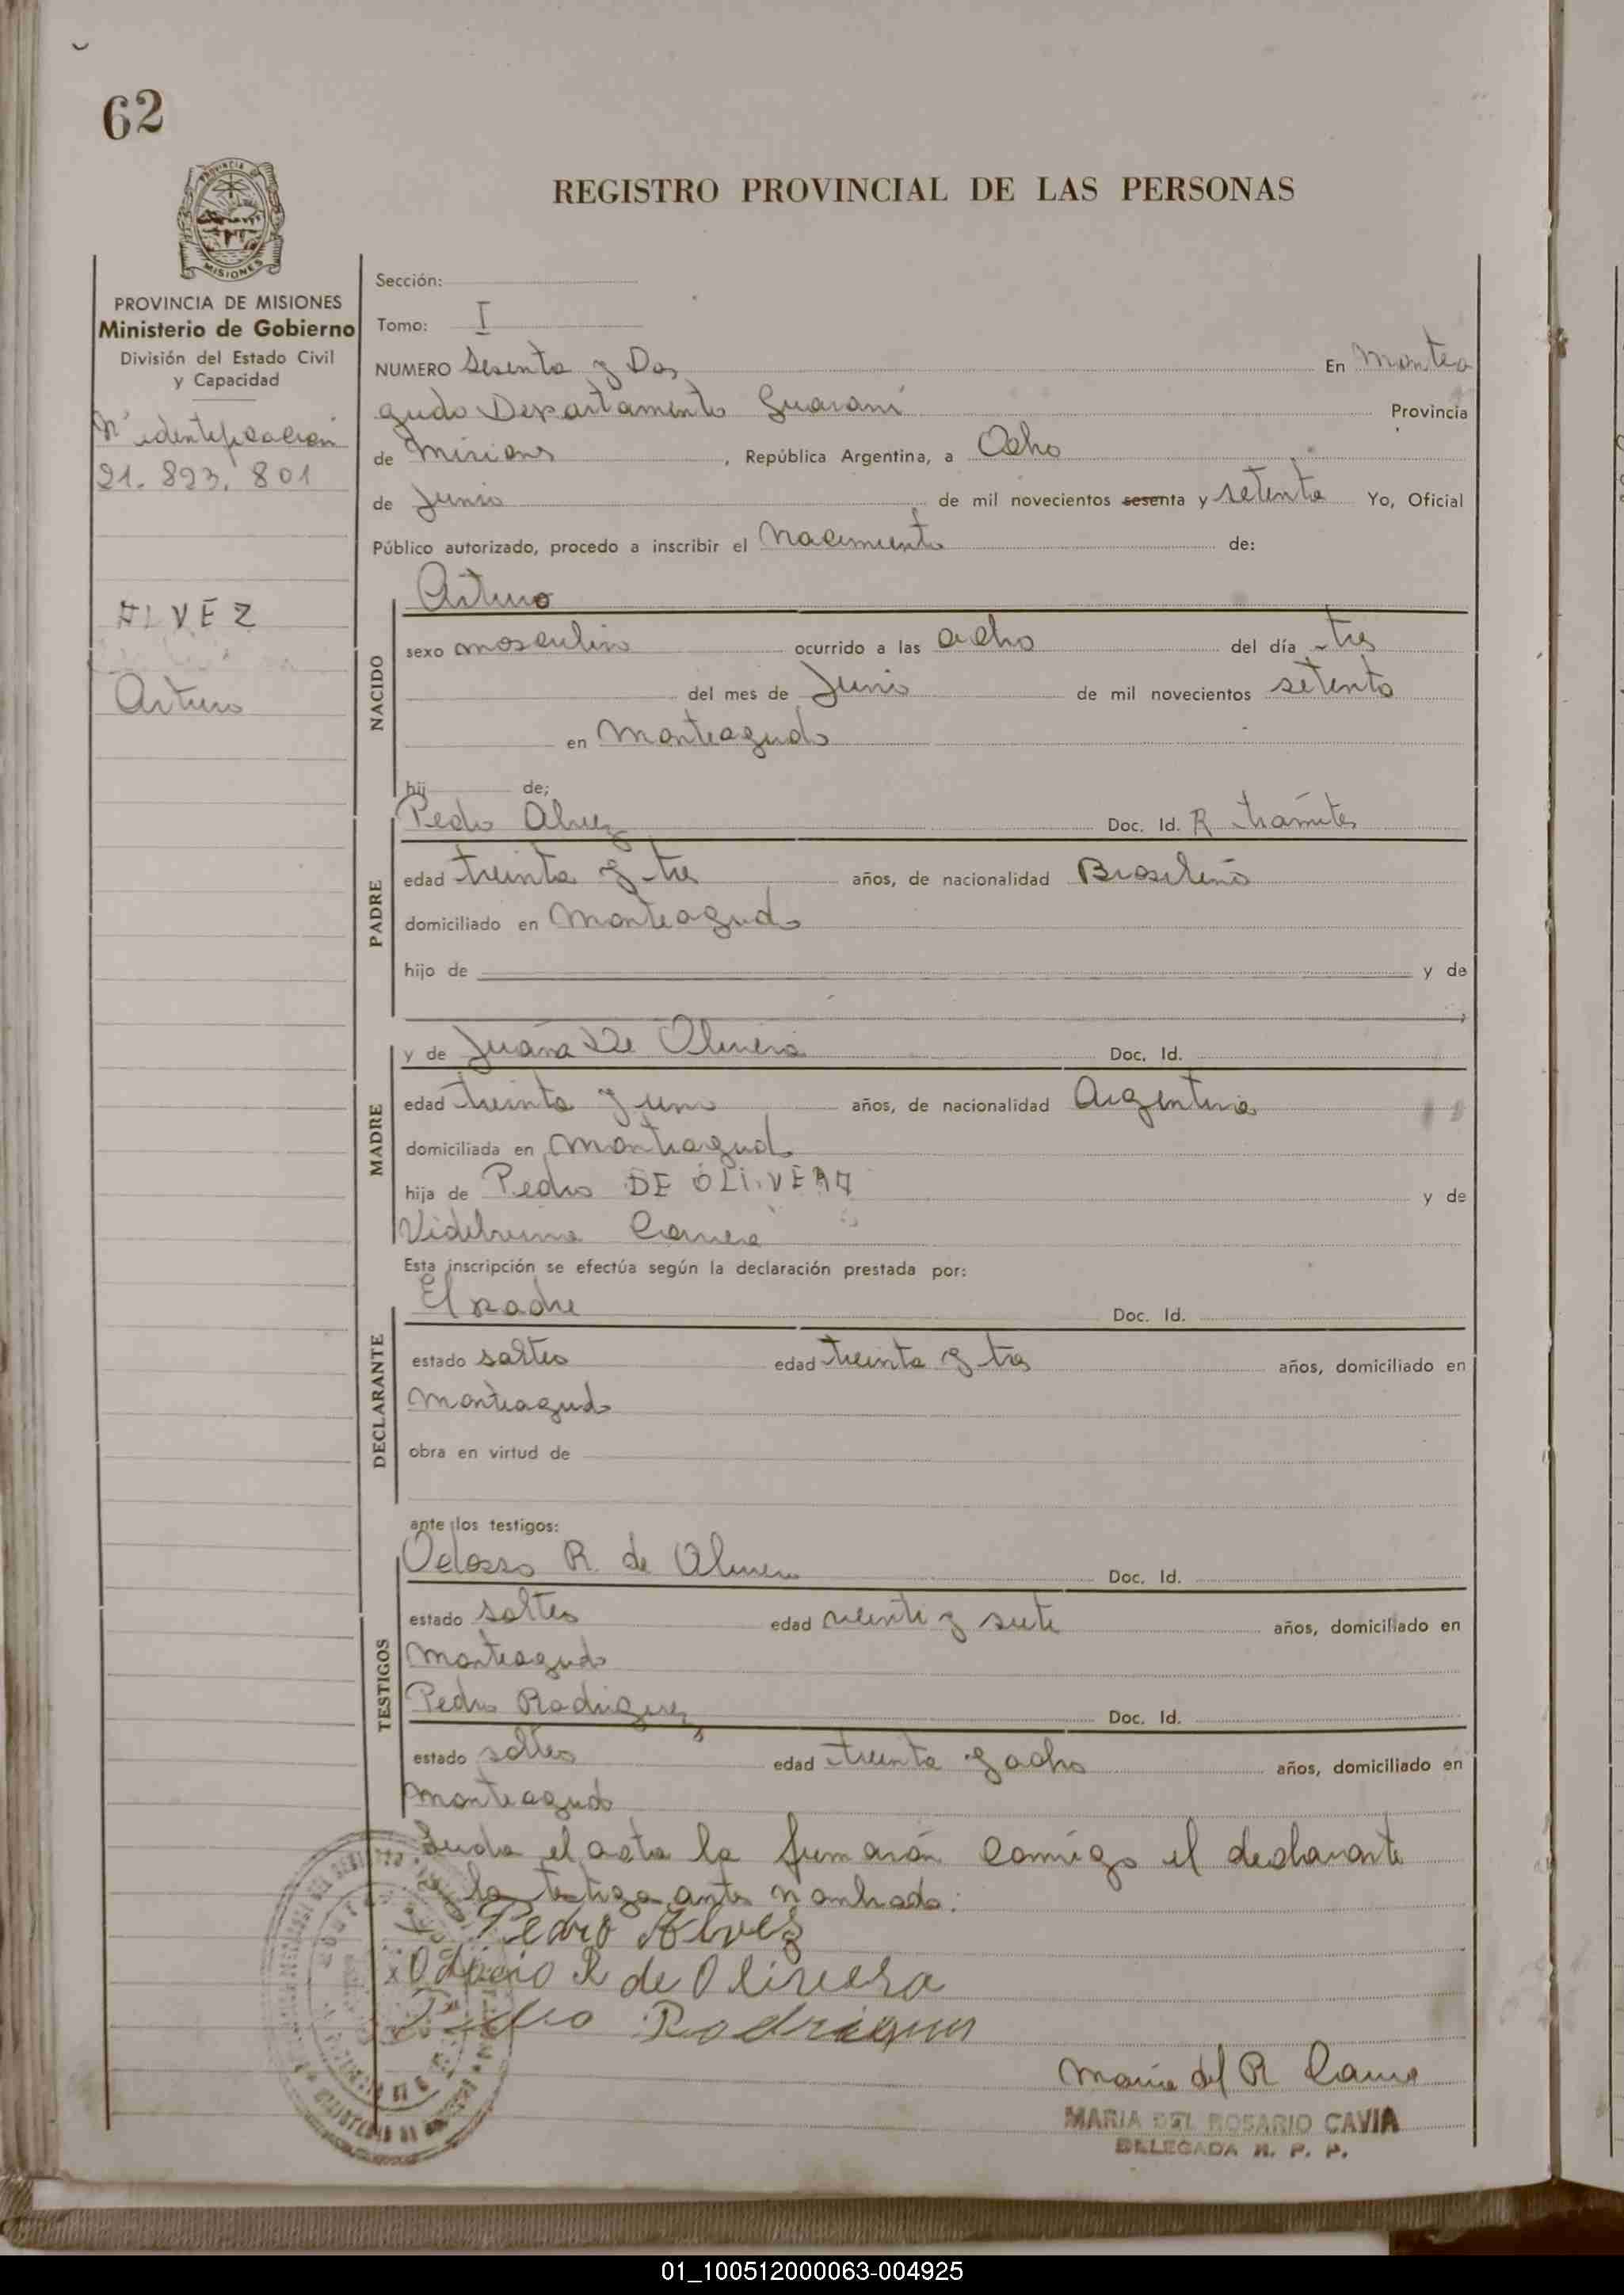 62
REGISTRO PROVINCIAL DE LAS PERSONAS
PROVINCIA DE MISIONES
Ministerio de Gobierno
División del Estado Civil
y Capacidad
Nº identificación
21.823.801
ALVEZ
Arturo
Sección:
Tomo: I
NUMERO Sesenta y Dos En Montea
gudo Departamento Guaraní Provincia
de Misiones, República Argentina, a Ocho
de Junio de mil novecientos sesenta y setenta Yo, Oficial
Público autorizado, procedo a inscribir el Nacimiento de:
NACIDO
Arturo
sexo masculino ocurrido a las ocho del día tres
del mes de Junio de mil novecientos setenta
en Monteagudo
hij de;
PADRE
Pedro Alvez Doc. Id. R trámites
edad treinta y tres años, de nacionalidad Brasileño
domiciliado en Monteagudo
hijo de y de
MADRE
y de Juana De Olivera Doc. Id.
edad treinta y uno años, de nacionalidad Argentina
domiciliada en Monteagudo
hija de Pedro DE OLIVERA y de
Esta inscripción se efectúa según la declaración prestada por:
DECLARANTE
El padre Doc. Id.
estado soltero edad treinta y tres años, domiciliado en
Monteagudo
obra en virtud de
ante los testigos:
TESTIGOS
R. de Olivera Doc. Id.
estado soltero edad veinte y siete años, domiciliado en
Monteagudo
Pedro Rodriguez Doc. Id.
estado soltero edad treinta y ocho años, domiciliado en
Monteagudo
el acta la firmarán conmigo el declarante
y los testigos antes nombrado:
Pedro Alvez
R de Olivera
Pedro Rodriguez
Maria del R Cavia
MARIA DEL ROSARIO CAVIA
DELEGADA R. P. P.
01_100512000063-004925